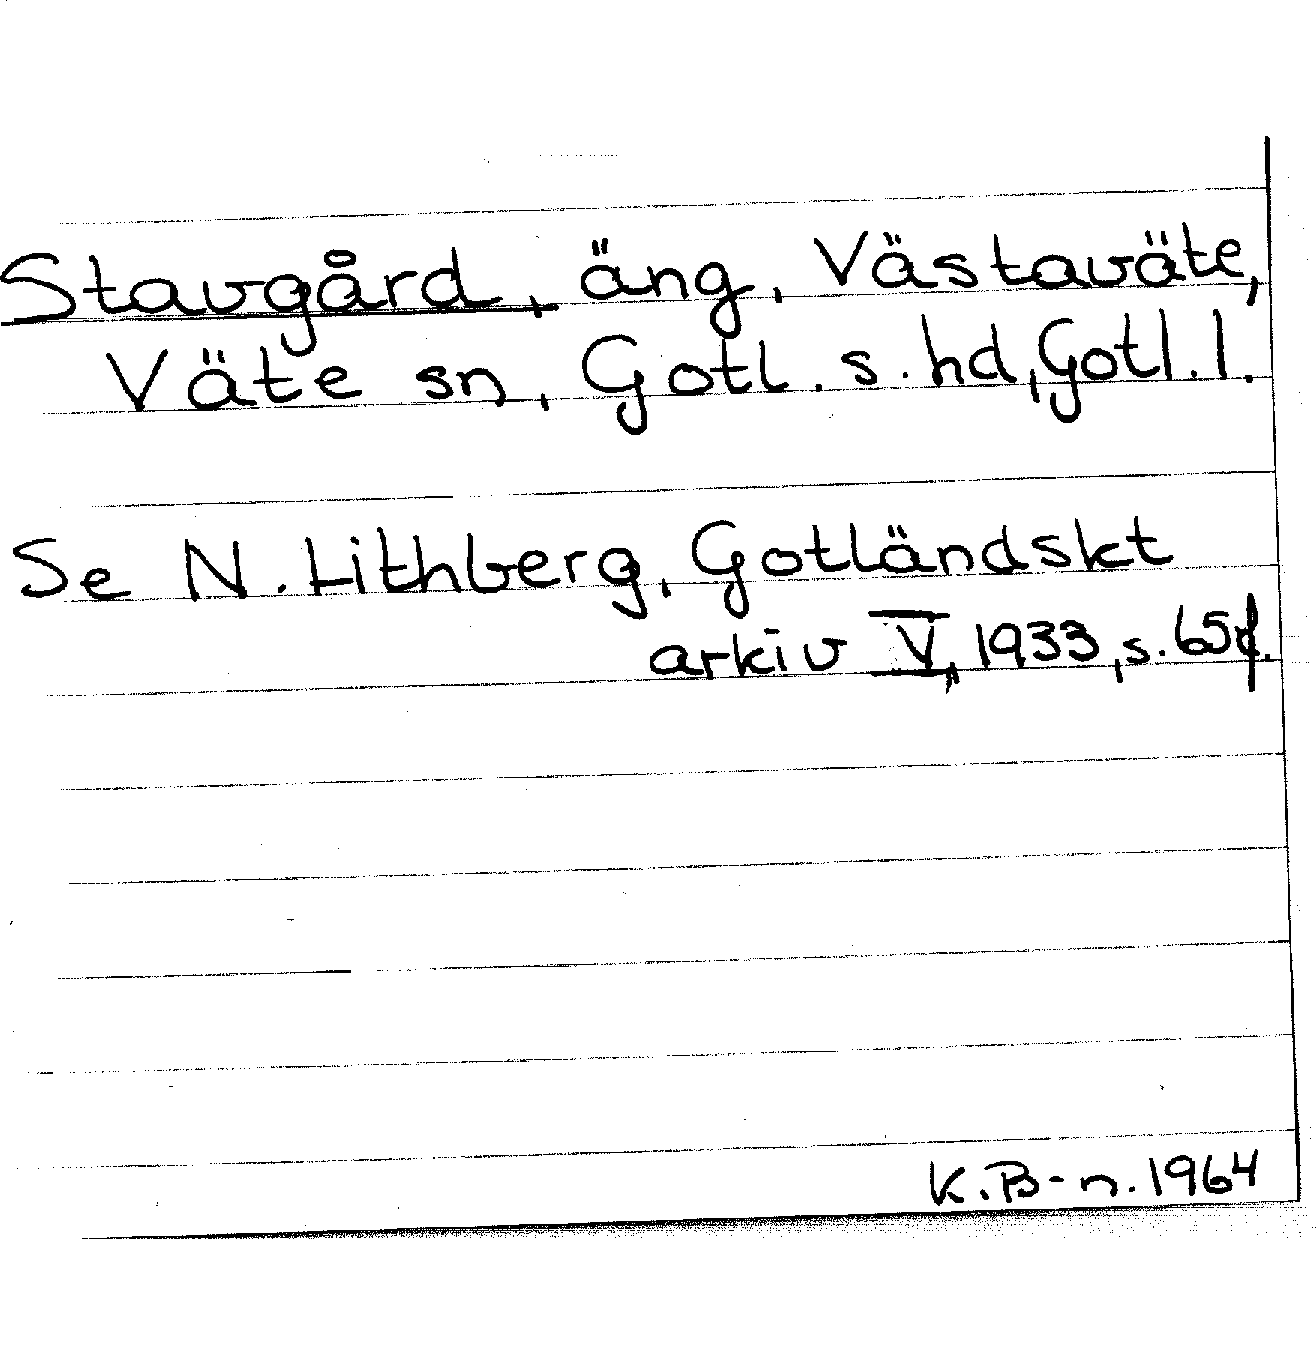 Stavgård, äng, Västaväte,
Väte sn, Gotl. s. hd, Gotl. l.
Se N. Lithberg, Gotländskt
arkiv V, 1933, s. 65f.
K. B-n. 1964